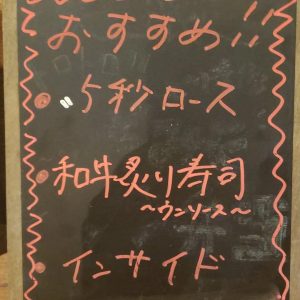 おすすめ!!
5秒ロース
和牛炙り寿司
～ウンソース～
インサイド